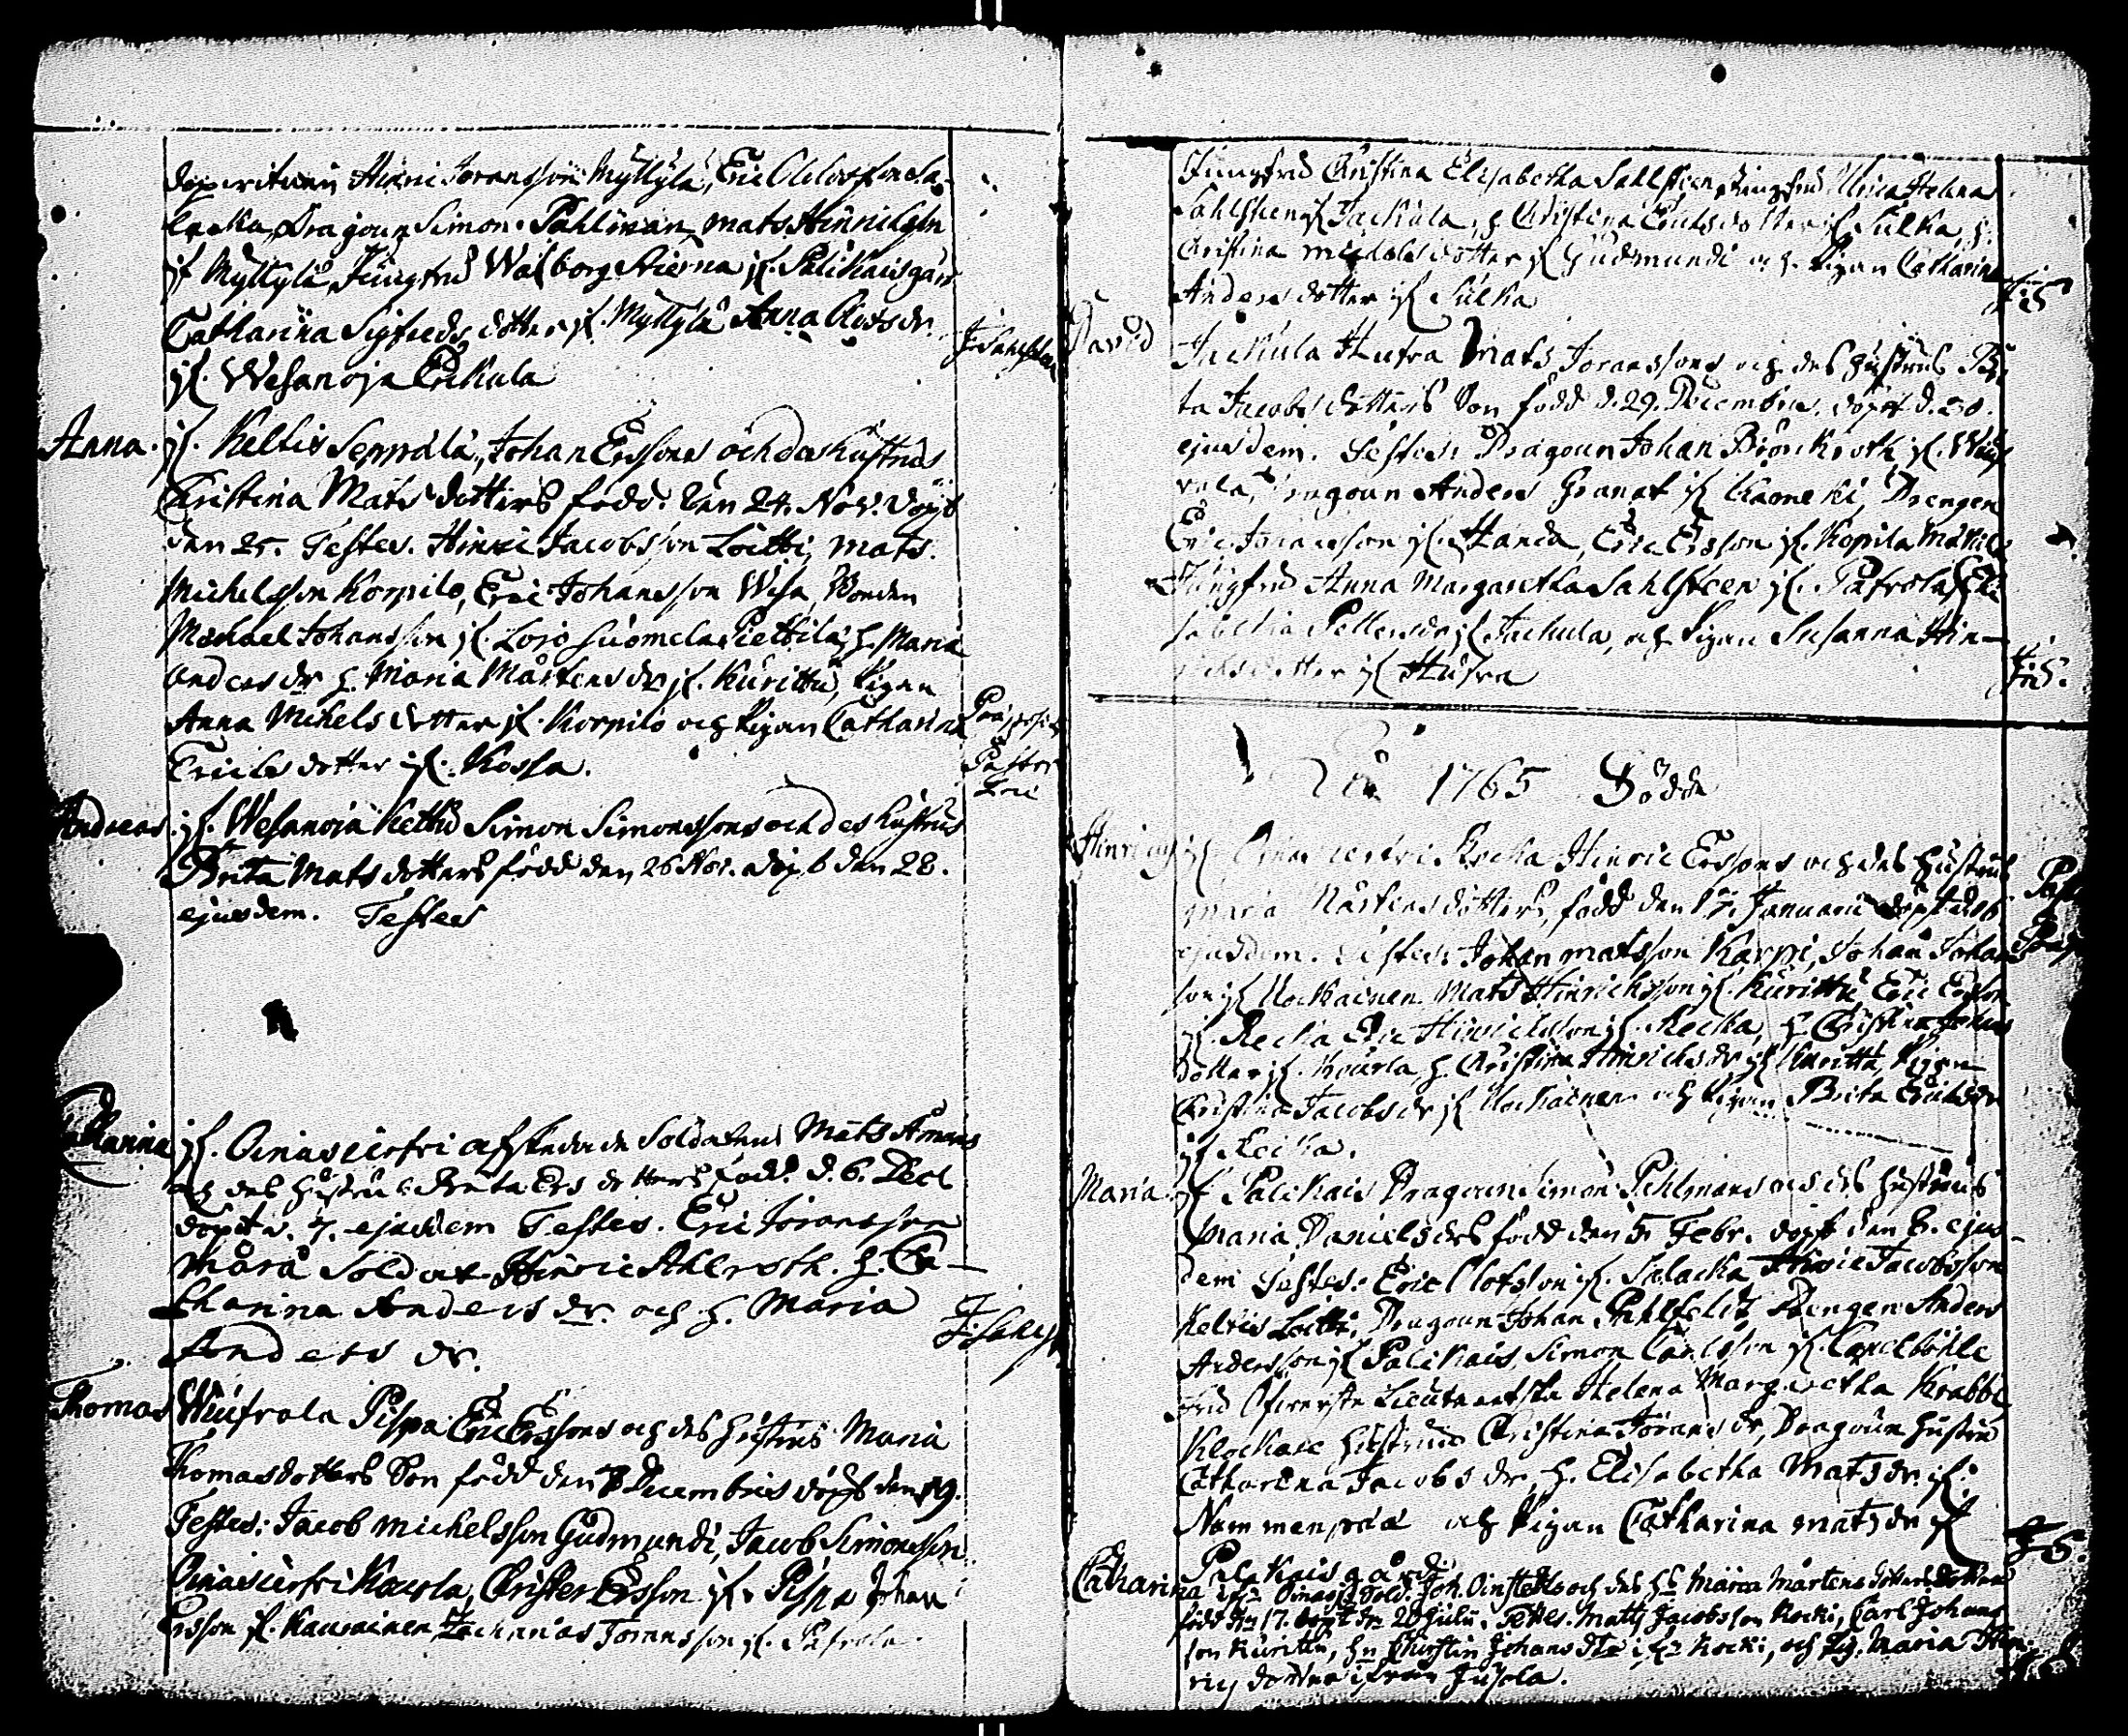 Hinric Joransson Myllylä, Eric Olofsson Sa-
lacka, Dragoun Simon Pahlman, Mats Hinrichsson
if. Myllylä, Jungfru Walborg Stierna if. Palikais gård
Catharina Sigfreds dotter if. Myllylä Anna
if. Wesanoja Erikula
J. Sahlsten
Anna. if. Keltis Seppälä, Johan Erssons och des hustrus
Christina Mats dotters född den 24. Nov. döpt
den 25. Testes. Hinric Jacobsson Loitti, Mats
Michelsson Korpilo, Eric Johansson Wesa, Bonden
Michael Johansson if. Lojo Suomela Piettilä, h. Maria
Anders dr h. Maria Mårtens dr if. Kurittu, Pigan
Anna Michels dotter if. Korpilo och Pigan Catharina
Ericks dotter if. Kossa.
Præpositus
Pastor
Loci
Andreas. if. Wesanoja Kettu Simon Simonssons och des hustrus
Brita Mats dotters född den 26 Nov. döpt den 28.
ejusdem. Testes
Catharina if. Oinasierfri afskedade Soldatens Mats Åmans
och des hustrus Brita Ers dotters född d. 6. Dec
döpt d. 7. ejusdem Testes. Eric Joransson
Måra Soldat Hinric Ahlroth. h. Ca-
tharina Anders dr. och h. Maria
Anders dr.
J. Sahlst
Thomas Wiufrola Pispa Eric Erssons och des hustrus Maria
Thomas dotters Son född den 7 Decembris döpt den 9.
Testes: Jacob Michelsson Gudmundi, Jacob Simonsson
Oinasierfri Kourla, Christer Ersson if. Pispa Johan
Ersson if. Kaukainen Zacharias Joransson if. Pafrola
Jungfru Christina Elisabetha Sahlsteen, Jungfru Ulrica Helena
Sahlsten if Jackula, h. Christina Ericks dotter if Sulka, h.
Christina Michels dotter if Gudmundi och Pigan Catharina
Anders dotter if Sulka
J:S
David Jackula Hufra Mats Joranssons och des hustrus Bri-
ta Jacobs dotters Son född d. 29. Decembris, döpt d. 30.
ejusdem. Testes: Dragoun Johan Biörckroth if. Wiuf
rola, Dragoun Anders Granat if Drengen
Eric Joransson if. Hanca, Eric Ersson if. Kopila
Jungfru Anna Margaretha Sahlsteen if. Pafrola, Eli
sabetha Pettersdr if Jackula, och Pigan Susanna Hin-
richs dotter if Hufra
J:S.
1765 Födde
Hinricus if Oinasierfri Recka Hinric Erssons och des hustrus
Maria Mårtens dotters, född den Januarii döpt d. 16
ejusdem. Testes: Johan Matsson Karpi, Johan Johans
son if Mats Hinrichsson if. Kurittu Eric Ersson
if. Recka Eric Hinrichsson if. Recka, h. Christina Johans
dotter if. Kourla, h. Christina Hinrichs dr if Kurittu, Pigan
Christina Jacobs dr if och Pigan Brita Ericks dr
if Recka.
Maria. if Palikais Dragoun Simon Pahlmans och des hustrus
Maria Daniels drs född den 5. Febr. döpt den 6. ejus-
dem Testes: Eric Olofsson if. Salacka, Hinric Jacobsson
Keltis Loitti, Dragoun Johan Drengen Anders
Andersson if Palikais, Simon Carlsson if. Caxelböhle
Fru Öfwerste Lieutenantska Helena Margaretha Krabbe
Klockare hustrun Christina Jorans dr, Dragoun hustru
Catharina Jacobs dr, h. Elisabetha Mats dr if:
Nommenpää och Pigan Catharina Mats dr if
Palikais gård.
J S.
Catharina ifrån Oinasj. Sold. Joh. och des Hu Maria Mårtens dotters dotter
född den 17. döpt den 20 Julii. Testes. Matts Jacobsson Rocki, Carl Johans
son Kurittu, Hu Christin Johans dtr i, Rocki, och Pig. Maria Hin-
rics dotter ifrån Jusola.